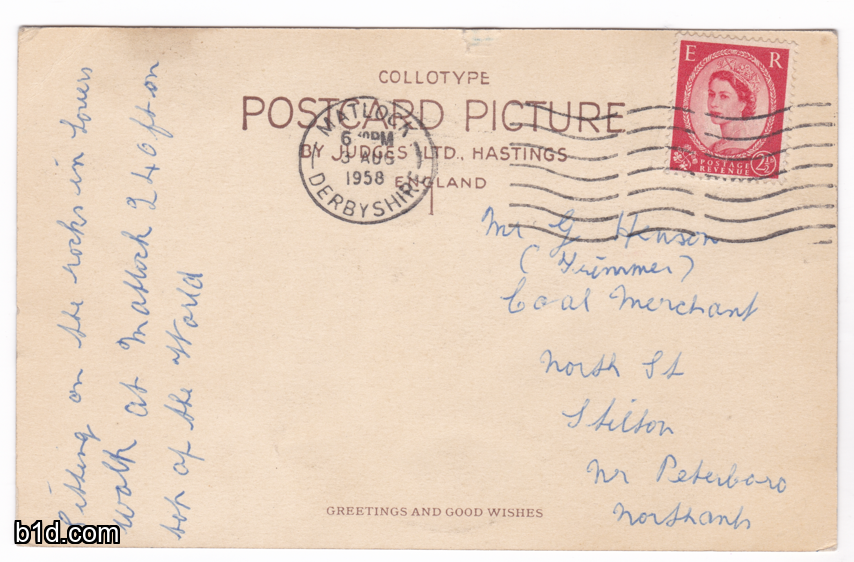 COLLOTYPE
POSTCARD PICTURE
BY JUDGES LTD., HASTINGS
ENGLAND
MATLOCK
DERBYSHIRE
AUG
1958
E R
POSTAGE
REVENUE
2½D
Sitting on the rocks in Lovers
Walk at Matlock 240 ft on
top of the World
Mr G Henson
(Trimmer)
Coal Merchant
North St
Stilton
Nr Peterboro
Northants
GREETINGS AND GOOD WISHES
b1d.com